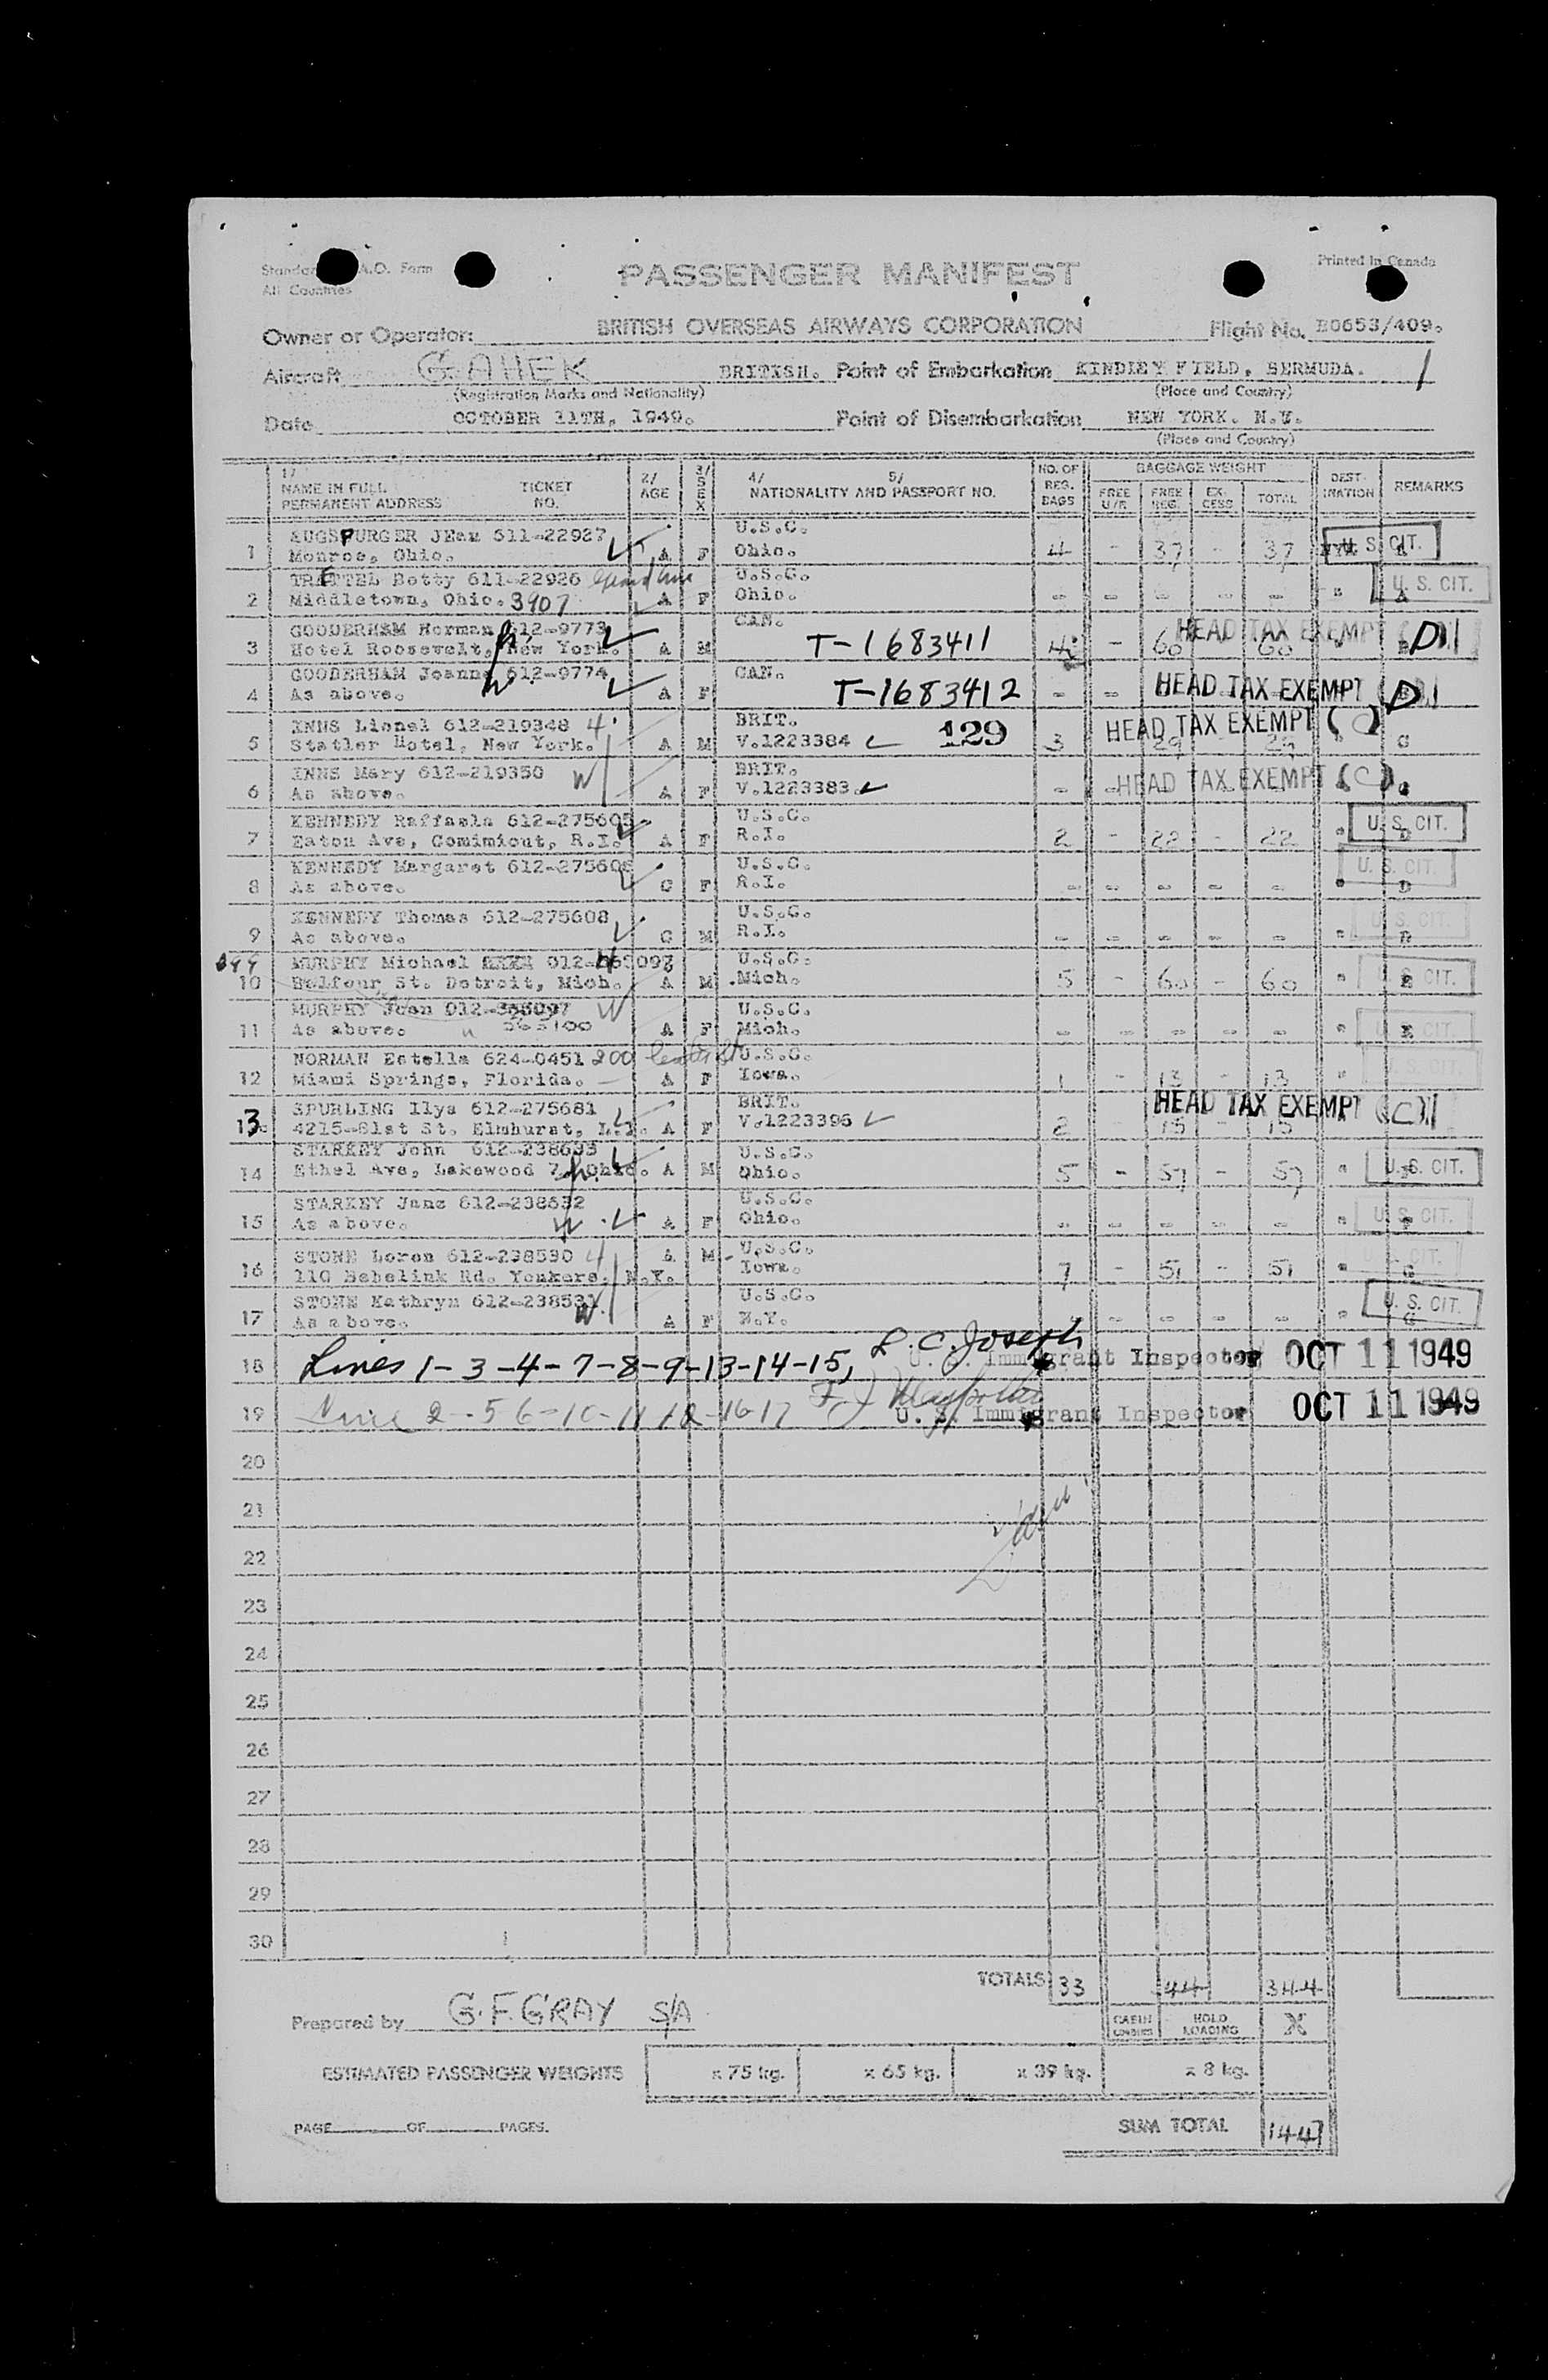 Standar A.O. Form
All Countries
PASSENGER MANIFEST
Printed In Canada
Owner or Operator: BRITISH OVERSEAS AIRWAYS CORPORATION Flight No. B0653/409.
Aircraft G. AHEK BRITISH. Point of Embarkation KINDLEY FIELD, BERMUDA. 1
(Registration Marks and Nationality) (Place and Country)
Date OCTOBER 11TH, 1949. Point of Disembarkation NEW YORK. N.Y.
(Place and Country)
1/ NAME IN FULL PERMANENT ADDRESS TICKET NO. 2/ AGE 3/ SEX 4/ 5/ NATIONALITY AND PASSPORT NO. NO. OF REG. BAGS BAGGAGE WEIGHT FREE U/R FREE REG. EX- CESS TOTAL DEST- INATION REMARKS
AUGSPURGER JEan 611-22927 U.S.C.
1 Monroe, Ohio. A F Ohio. 4 - 37 - 37 U. S. CIT.
TRETTEL Betty 611-22926 U.S.C.
2 Middletown, Ohio. 3907 A F Ohio. - - - - - " U. S. CIT.
GOODERHAM Herman 612-9773 CAN. HEAD TAX EXEMPT
3 Hotel Roosevelt, New York. A M T-1683411 4 - 60 60 D
GOODERHAM Joanne 612-9774 CAN.
4 As above. A F T-1683412 - - HEAD TAX EXEMPT D
INNS Lionel 612-219348 4 BRIT. HEAD TAX EXEMPT (C)
5 Statler Hotel, New York. A M V.1223384 129 3 29 29 " G
INNS Mary 612-219350 W BRIT.
6 As above. A F V.1223383. - - HEAD TAX EXEMPT (C)
KENNEDY Raffaela 612-275605 U.S.C.
7 Eaton Ave, Comimicut, R.I. A F R.I. 2 - 22 - 22 " U. S. CIT. D
KENNEDY Margaret 612-275606 U.S.C.
8 As above. C F R.I. - - - - - " U. S. CIT. D
KENNEDY Thomas 612-275608 U.S.C.
9 As above. C M R.I. - - - - - " U. S. CIT. D
MURPHY Michael U.S.C.
10 Balfour St. Detroit, Mich. A M Mich. 5 - 60 - 60 " U. S. CIT. E
MURPHY Joan W U.S.C.
11 As above. A F Mich. - - - - - " U. S. CIT. E
NORMAN Estella 624-0451 200 U.S.C.
12 Miami Springs, Florida. A F Iowa. 1 - 13 - 13 " U. S. CIT.
SPURLING Ilys 612-275681 BRIT. HEAD TAX EXEMPT (C)
13 4215-81st St. Elmhurst, L.I. A F V.1223396 2 - 15 - 15
STARKEY John 612-238693 U.S.C.
14 Ethel Ave, Lakewood 7, Ohio. A M Ohio. 5 - 57 - 57 " U. S. CIT.
STARKEY Jane 612-238532 U.S.C.
15 As above. W A F Ohio. - - - - - " U. S. CIT.
STONE Loren 612-238530 4 A M U.S.C.
16 110 Bobolink Rd. Yonkers. N.Y. Iowa. 7 - 51 - 51 " U. S. CIT. G
STONE Kathryn 612-238531 U.S.C.
17 As above. W A F N.Y. - - - - - " U. S. CIT. G
18 Lines 1-3-4-7-8-9-13-14-15, L. C. Joseph U. S. Immigrant Inspector OCT 11 1949
19 Line 2-5 6-10-11 12-16-17 U. S. Immigrant Inspector OCT 11 1949
20
21
22
23
24
25
26
27
28
29
30
TOTALS 33 44 344
Prepared by G.F. GRAY S/A
CABIN LOADING HOLD LOADING X
ESTIMATED PASSENGER WEIGHTS x 75 kg. x 65 kg. x 39 kg. x 8 kg.
PAGE OF PAGES. SUM TOTAL 1447